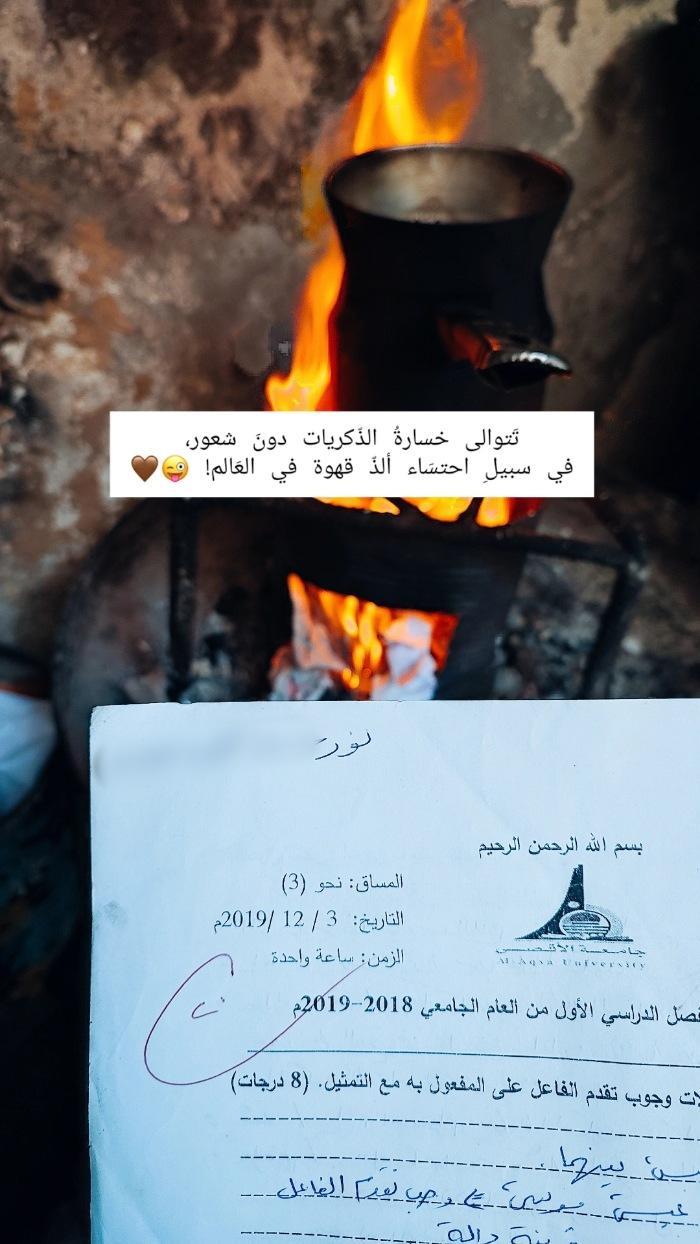 تَتوالى خسارةُ الذّكريات دونَ شعور،
في سبيلِ احتسَاء ألذّ قهوة في العَالم! 😜🤎
نور
بسم الله الرحمن الرحيم
المساق: نحو (3)
التاريخ: 3 / 12 /2019م
الزمن: ساعة واحدة
جامعة الأقصى
Al-Aqsa University
الدراسي الأول من العام الجامعي 2018-2019م
وجوب تقدم الفاعل على المفعول به مع التمثيل. (8 درجات)
بينهما.
عيسى موسى وجب تقدم الفاعل
دالة